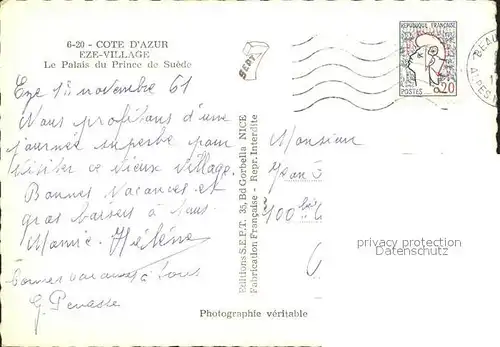 6-20 - COTE D'AZUR
EZE-VILLAGE
Le Palais du Prince de Suède
Eze 1er novembre 61
Nous profitons d'une
journée superbe pour
visiter ce vieux village.
Bonnes vacances et
gros baisers à tous.
Mamie. Hélène
Bonnes vacances à tous
G.
Editions S.E.P.T. 35, Bd Gorbella NICE
Fabrication Française - Repr. Interdite
SEPT
REPUBLIQUE FRANÇAISE
POSTES
0,20
BEAU
ALPES
Monsieur
Jean
100 bis
privacy protection
Datenschutz
Photographie véritable